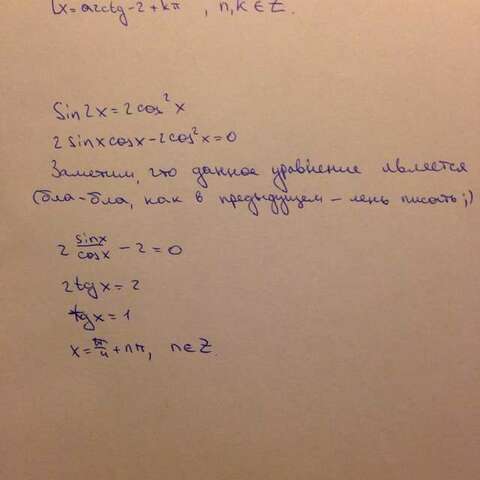 [x=arctg-2+kπ , n,k∈Z.
Sin2x=2cos²x
2sinxcosx-2cos²x=0
Заметим, что данное уравнение является
(бла-бла, как в предыдущем – лень писать ;)
2 sinx/cosx - 2 = 0
2tgx=2
tgx=1
x=π/4+nπ, n∈Z.